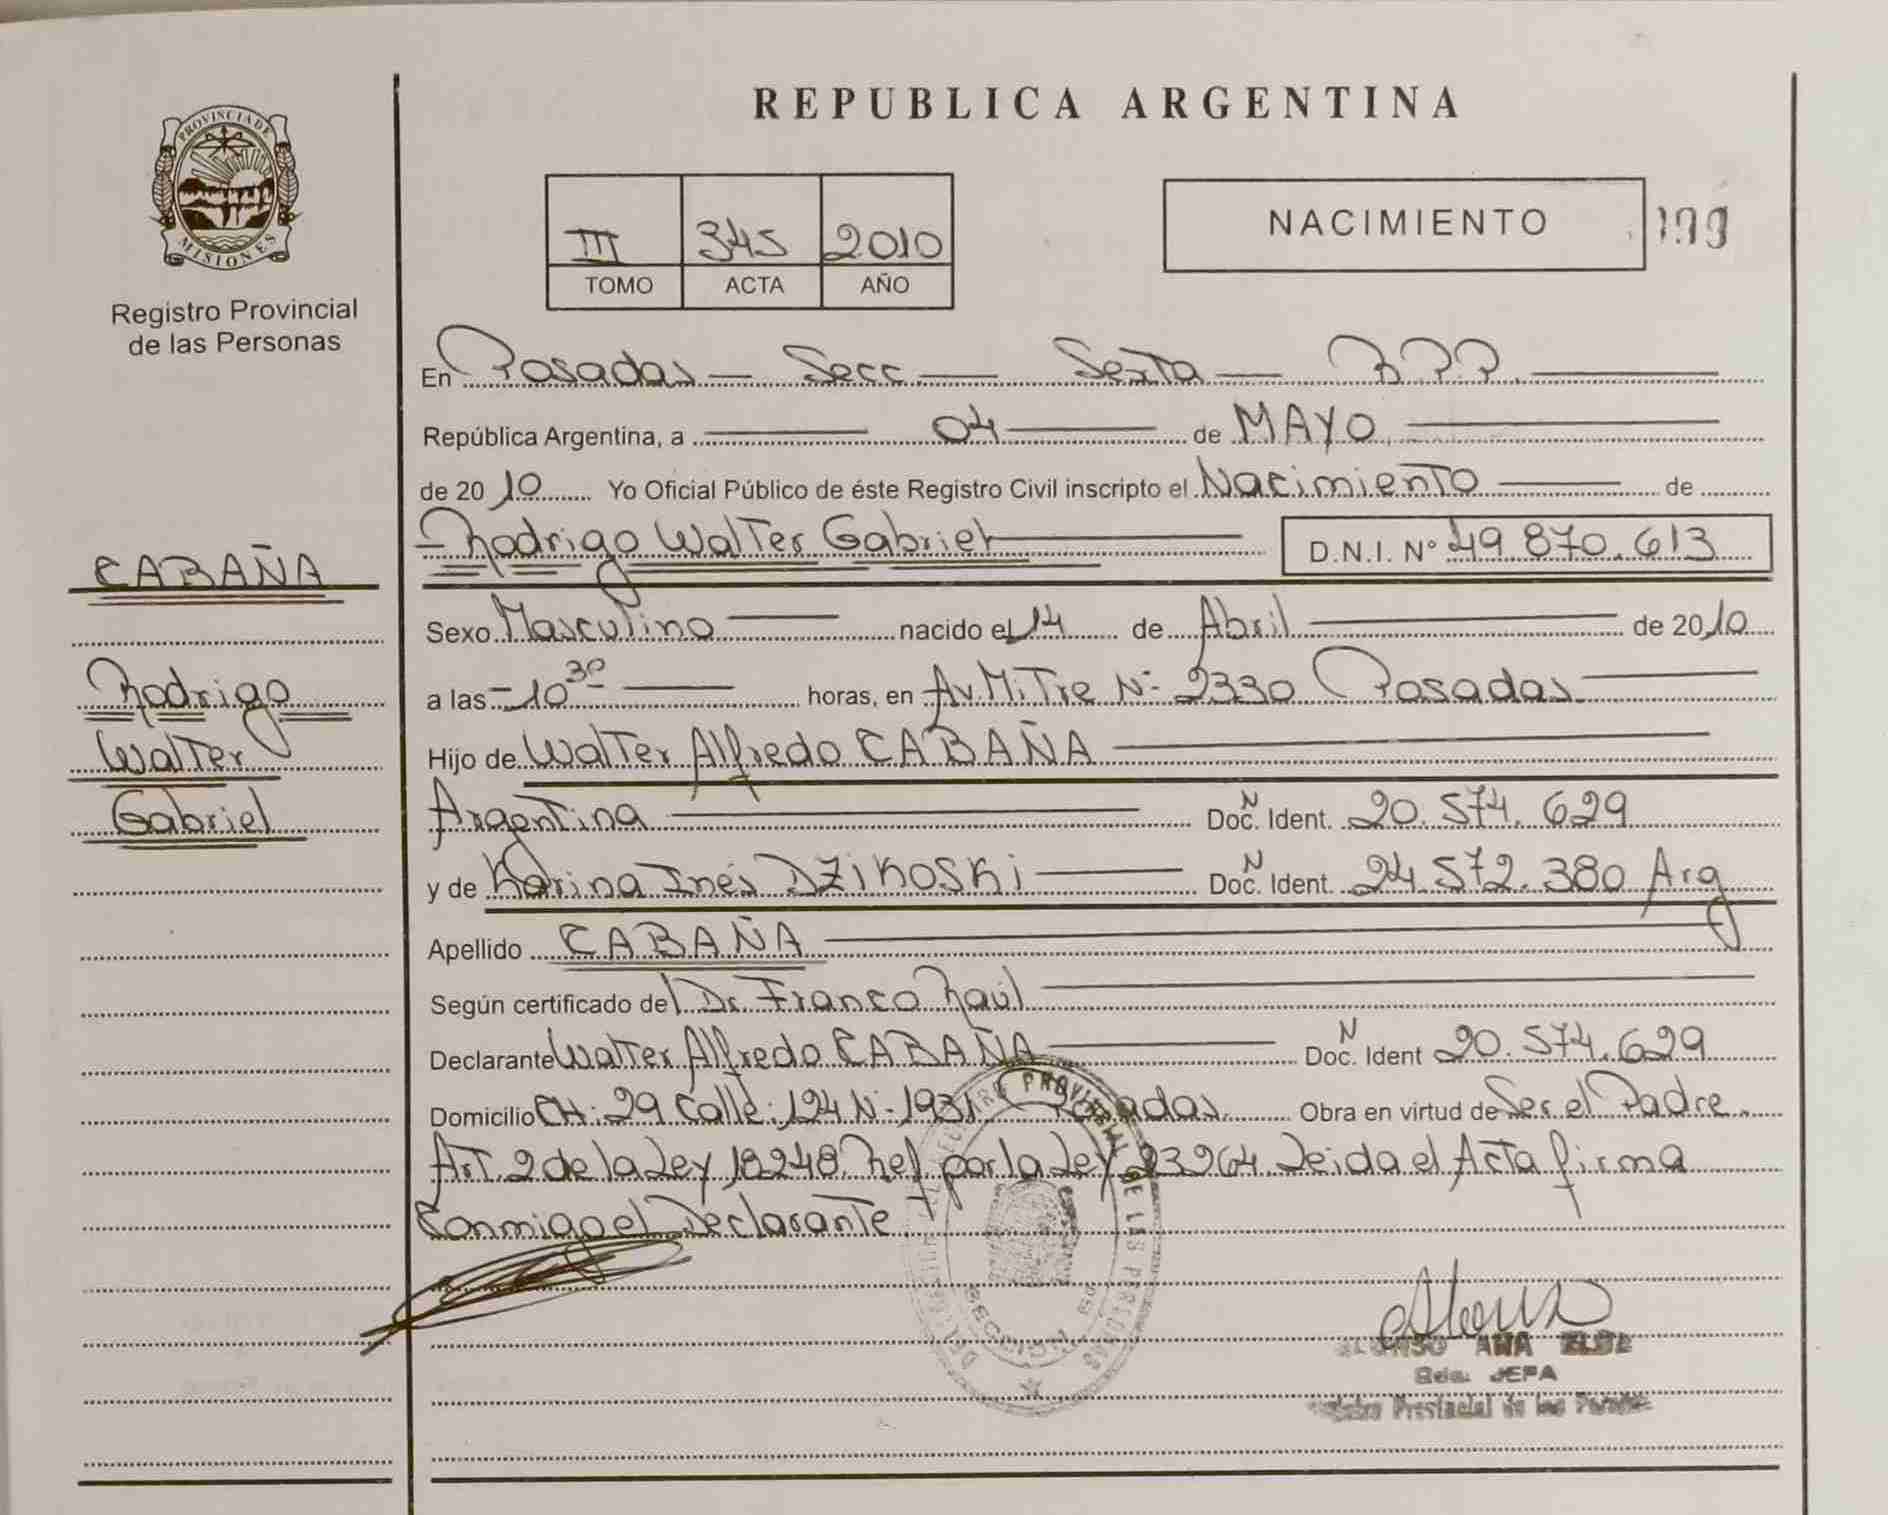 REPUBLICA ARGENTINA
PROVINCIA DE MISIONES
Registro Provincial
de las Personas
III 345 2010
TOMO ACTA AÑO
NACIMIENTO 199
En Posadas - Secc. - Sexta - R.P.P.
República Argentina, a 04 de MAYO
de 20 10 Yo Oficial Público de éste Registro Civil inscripto el Nacimiento de
Rodrigo Walter Gabriel D.N.I. Nº 49.870.613
CABAÑA
Rodrigo
Walter
Gabriel
Sexo Masculino nacido el 14 de Abril de 2010
a las 10 30 horas, en Av. Mitre Nº 2330 Posadas
Hijo de Walter Alfredo CABAÑA
Argentina Doc. N Ident. 20.574.629
y de Karina Inés DZIKOSKI Doc. N Ident. 24.572.380 Arg
Apellido CABAÑA
Según certificado del Dr. Franco Raúl
Declarante Walter Alfredo CABAÑA Doc. N Ident 20.574.629
Domicilio CH: 29 Calle: 124 N: 1931 Posadas. Obra en virtud de Ser el Padre.
Art. 2 de la Ley 18248. Ref. por la Ley 23264. Leida el Acta firma
Conmigo el Declarante.
REGISTRO PROVINCIAL DE LAS PERSONAS
SECCION
ALONSO ANA
JEFA
Registro Provincial de las Personas